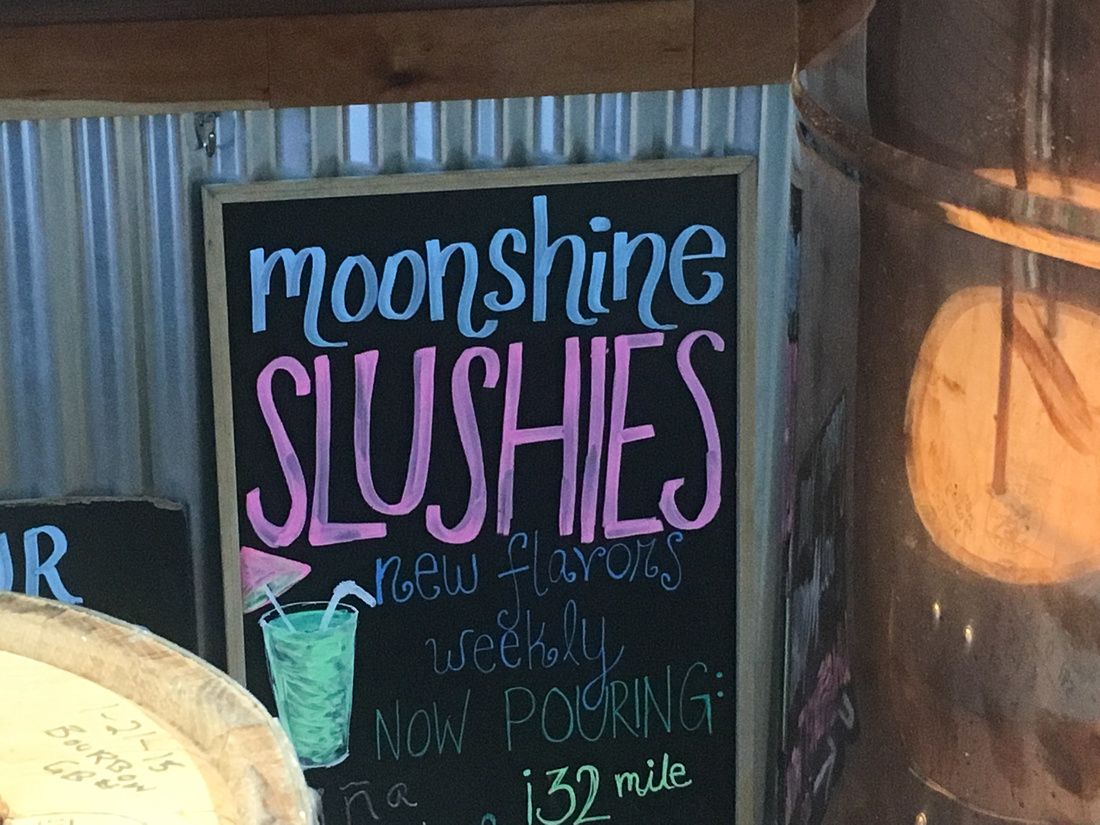 moonshine
SLUSHIES
new flavors
weekly
NOW POURING:
ña
132 mile
UR
1-21-15
BOURBON